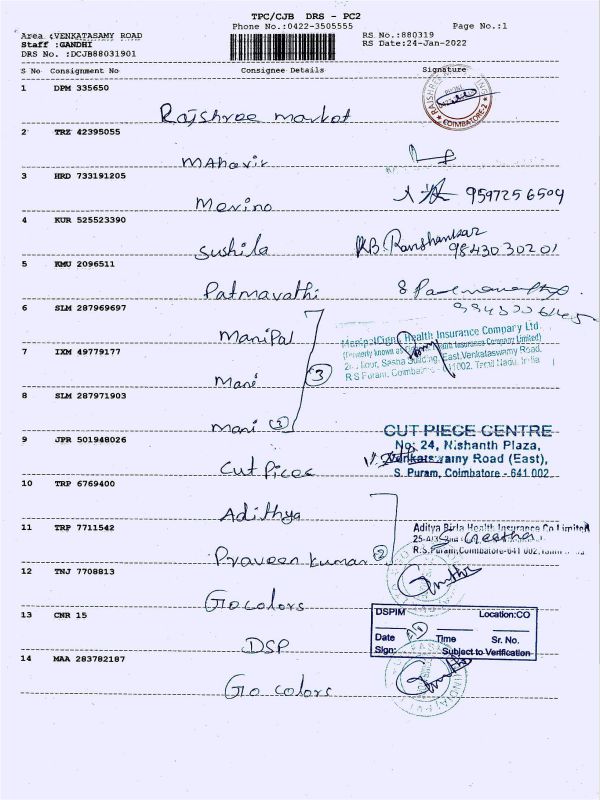 TPC/CJB DRS - PC2
Phone No.:0422-3505555 Page No.:1
Area :VENKATASAMY ROAD RS No.:880319
Staff :GANDHI RS Date:24-Jan-2022
DRS No. :DCJB88031901
S No Consignment No Consignee Details Signature
1 DPM 335650
Rajshree market
COIMBATORE-2
2 TRZ 42395055
Mahavir
3 HRD 733191205
Merino 9597256504
4 KUR 525523390
Sushila 98430 30201
5 KMU 2096511
Patmavathi
6 SLM 287969697
Manipal
ManipalCigna Health Insurance Company Ltd
(formerly known as Health Insurance Company Limited)
Sesha Building, East Venkataswamy Road,
R S Puram, Coimbatore - 641002, Tamil Nadu, India
7 IXM 49779177
Mani 3
8 SLM 287971903
Mani 3
9 JPR 501948026
CUT PIECE CENTRE
No: 24, Nishanth Plaza,
Venkatswamy Road (East),
S. Puram, Coimbatore - 641 002
Cut Pices
10 TRP 6769400
Adithya
11 TRP 7711542
Aditya Birla Health Insurance Co Limited
Geetha
R.S.Puram,Coimbatore-641 002,
Praveen kumar 2
12 TNJ 7708813
Go colors
13 CNR 15
DSPIM Location:CO
Date Time Sr. No.
Sign: Subject to Verification
DSP
14 MAA 283782187
Go colors